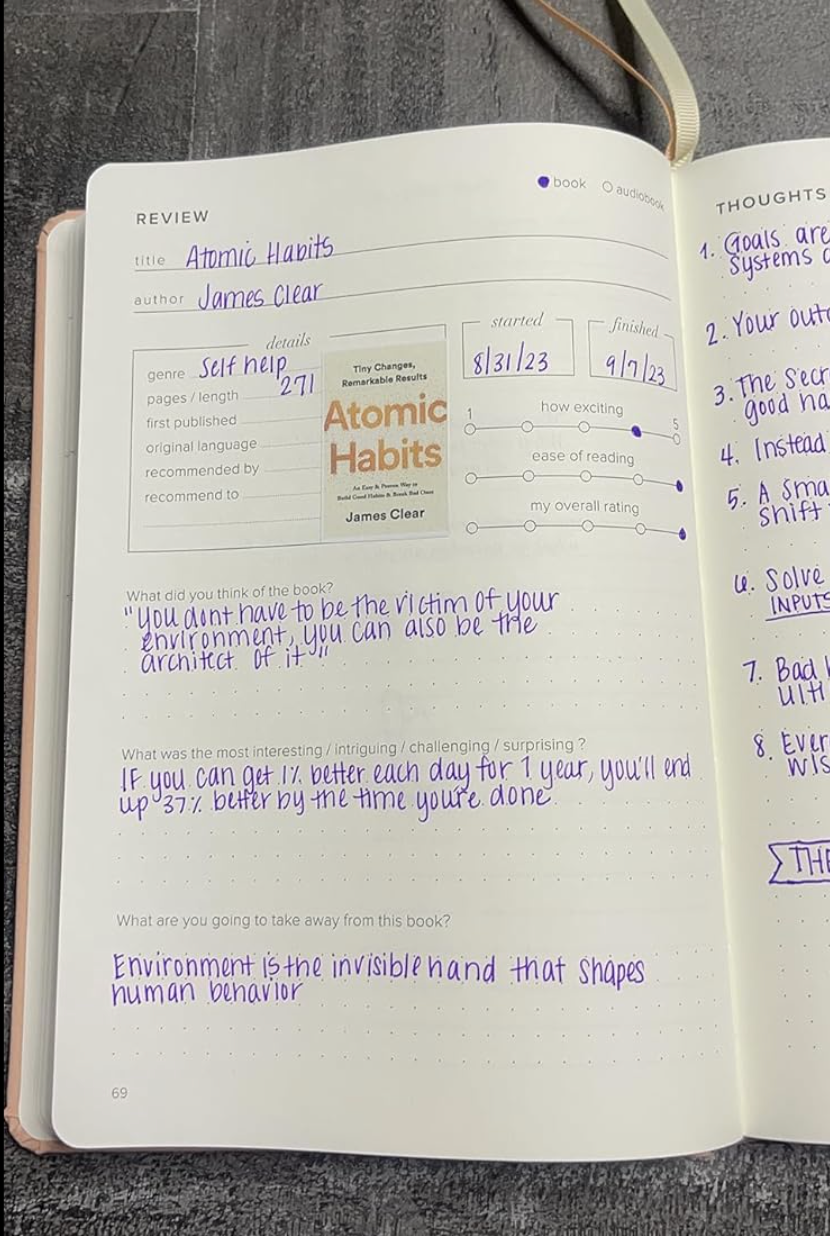 REVIEW
book audiobook
title Atomic Habits
author James Clear
details
genre Self help
pages / length 271
first published
original language
recommended by
recommend to
Tiny Changes,
Remarkable Results
Atomic
Habits
An Easy & Proven Way to
Build Good Habits & Break Bad Ones
James Clear
started
8/31/23
finished
9/7/23
how exciting
1 5
ease of reading
my overall rating
What did you think of the book?
"You dont have to be the victim of your
environment, you can also be the
architect of it"
What was the most interesting / intriguing / challenging / surprising ?
IF you can get 1% better each day for 1 year, you'll end
up 37% better by the time you're done
What are you going to take away from this book?
Environment is the invisible hand that shapes
human behavior
69
THOUGHTS
1. Goals are
systems
2. Your
3. The
good
4. Instead
5. A
shift
6. Solve
INPUTS
7. Bad
8.
THE